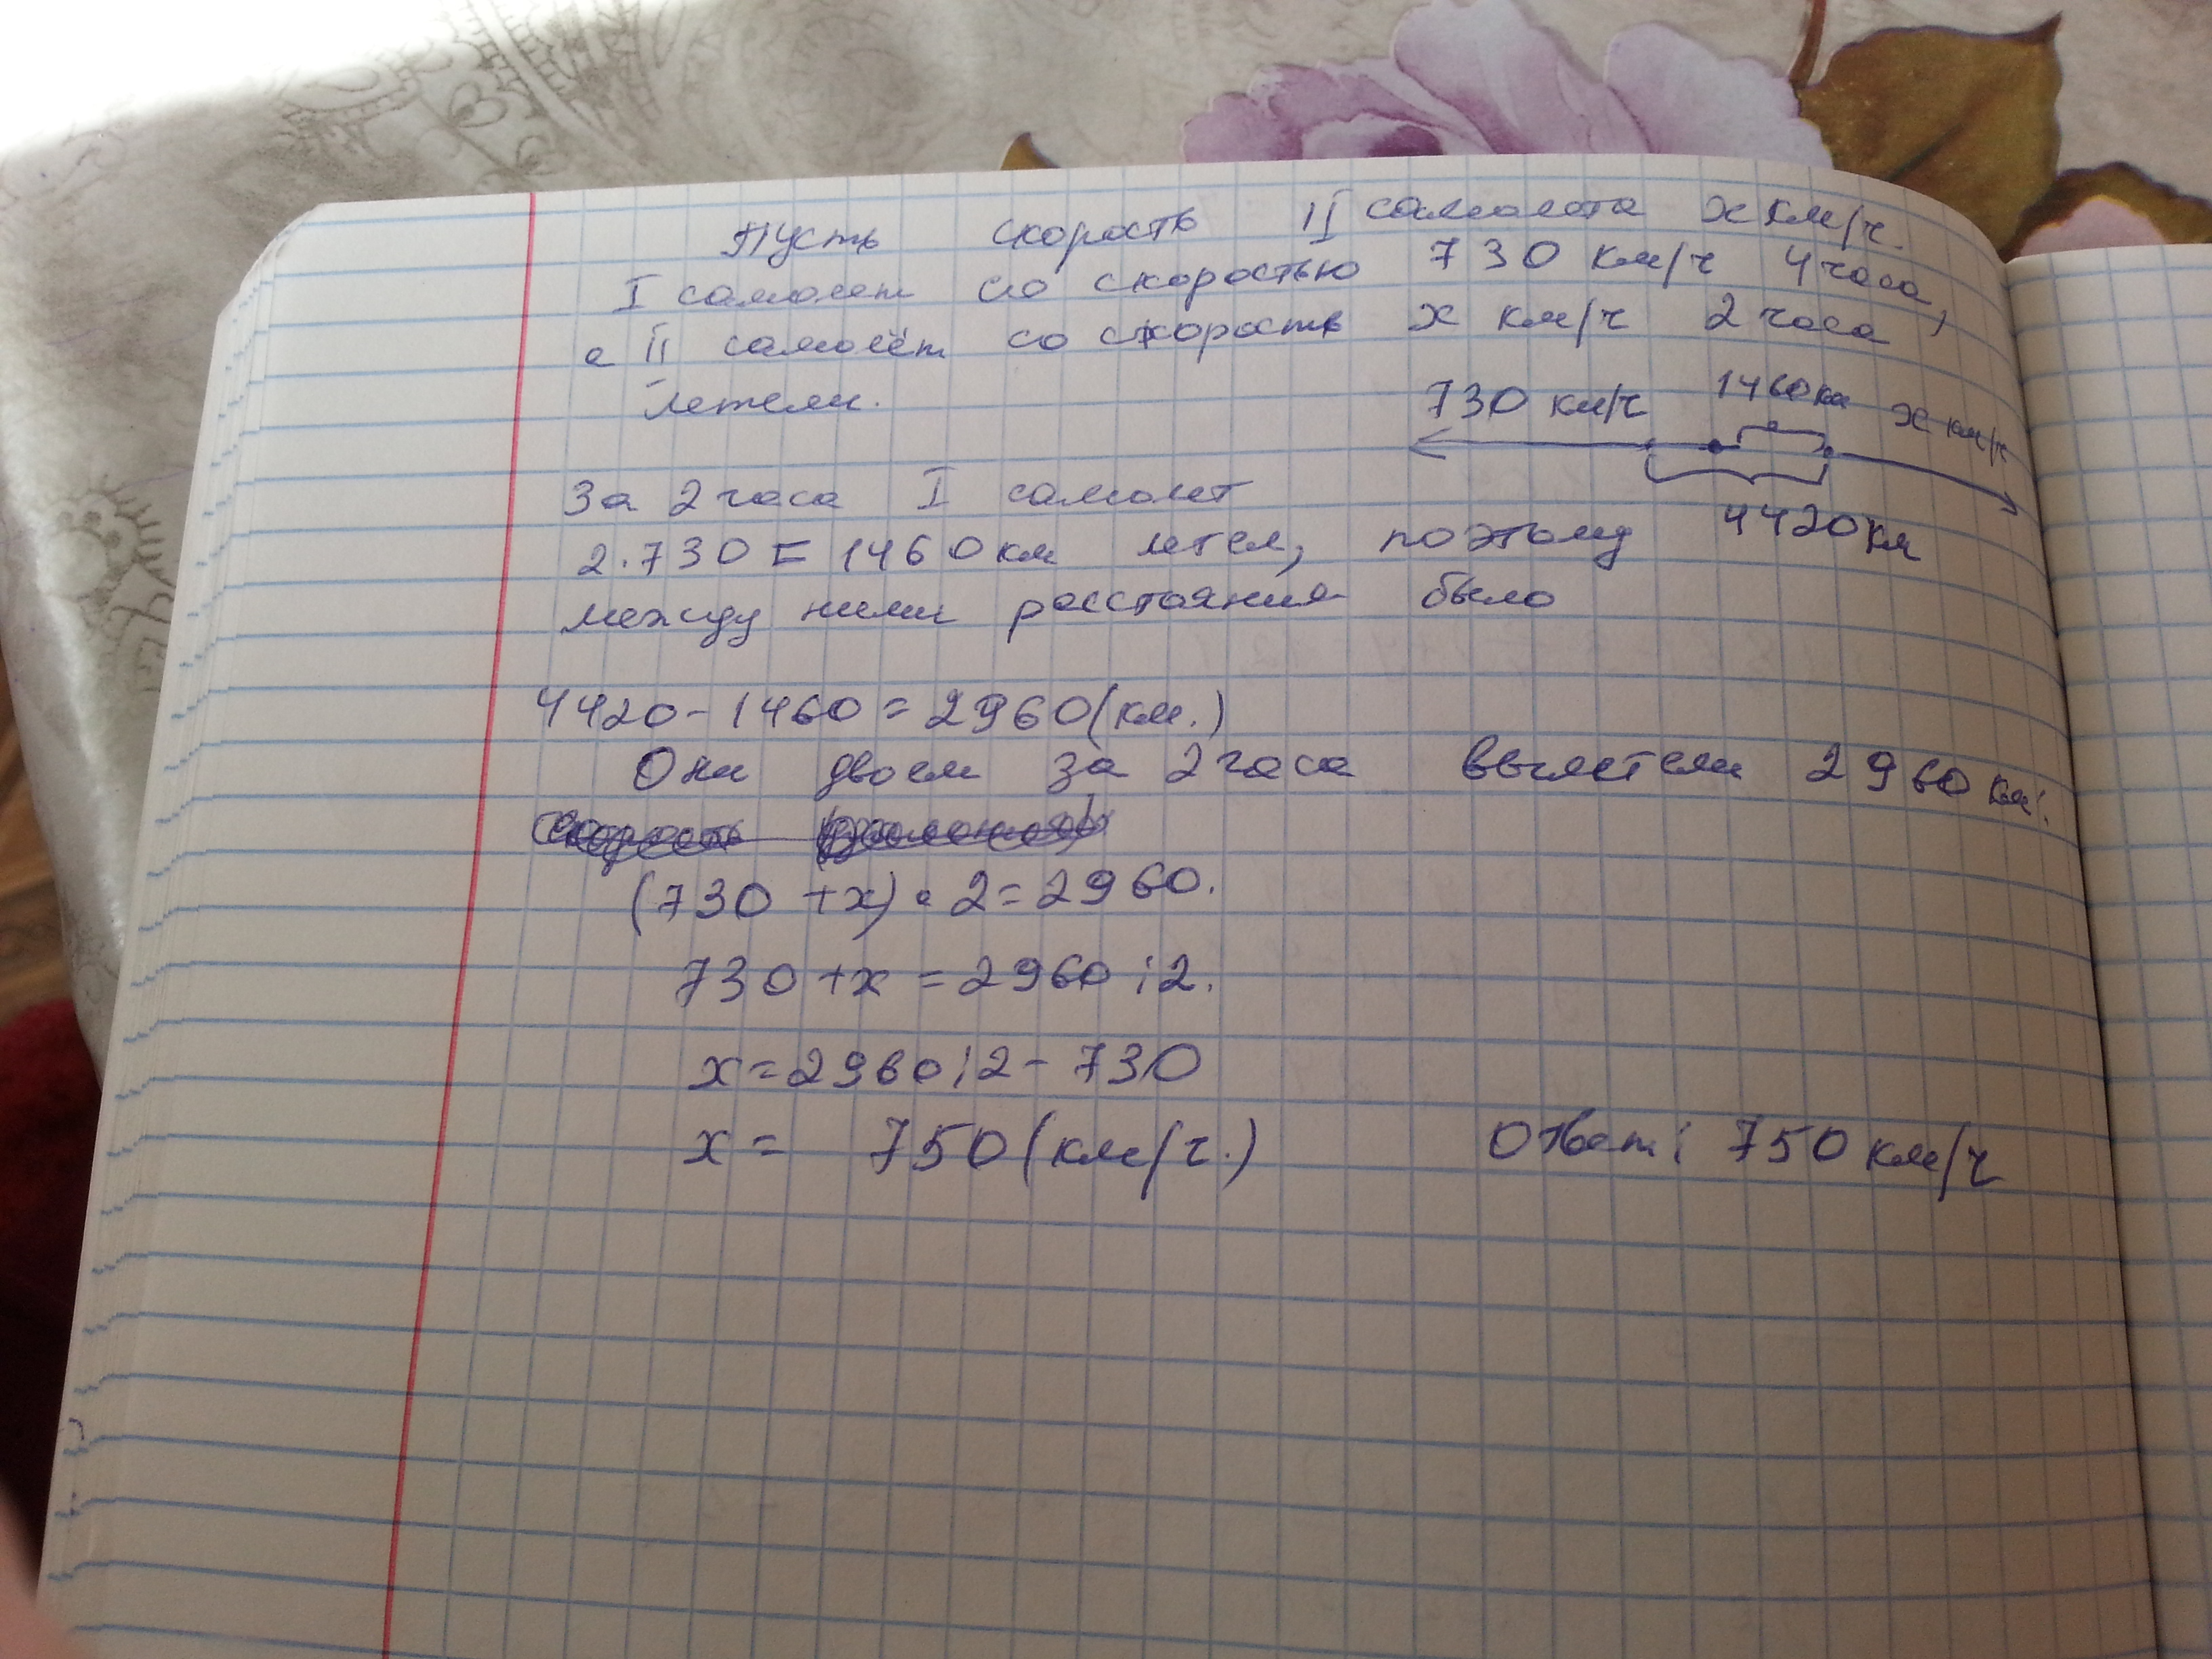 Пусть скорость II самолота х км/ч.
I самолет со скоростью 730 км/ч 4 часа,
а II самолёт со скорость х км/ч 2 часа
летели.
730 км/ч 1460 км х км/ч
4420 км
За 2 часа I самолет
2·730 = 1460 км летел, поэтому
между ними расстояния было
4420 - 1460 = 2960 (км.)
Они двоем за 2 часа вылетели 2960 км:
(730 + х) · 2 = 2960.
730 + х = 2960 : 2.
х = 2960 : 2 - 730
х = 750 (км/ч.)
Ответ: 750 км/ч